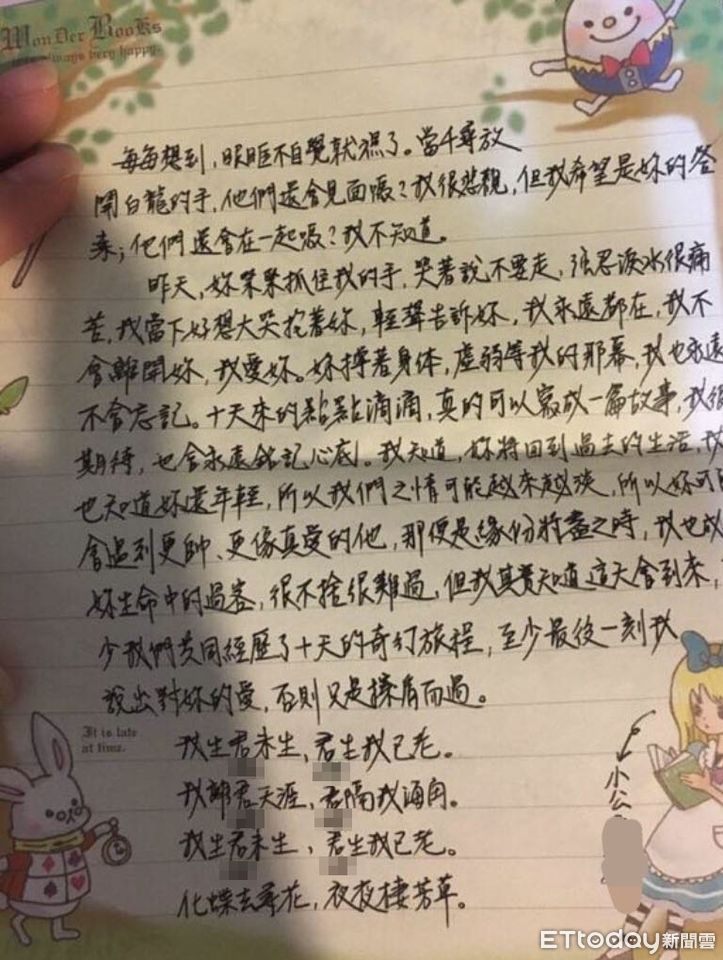 WonDer BooKs
always very happy.
每每想到,眼眶不自覺就濕了。當千尋放
開白龍的手,他們還會見面嗎?我很悲觀,但我希望是妳的答
案;他們還會在一起嗎?我不知道。
昨天,妳緊緊抓住我的手,哭著說不要走,強忍淚水很痛
苦,我當下好想大哭抱著妳,輕聲告訴妳,我永遠都在,我不
會離開妳,我愛妳。妳撐著身体,虛弱等我的那幕,我也永遠
不會忘記。十天來的點點滴滴,真的可以寫成一篇故事,我很
期待,也會永遠銘記心底。我知道,妳將回到過去的生活,我
也知道妳還年輕,所以我們之情可能越來越淡,所以妳可能
會遇到更帥、更像真愛的他,那便是緣份將盡之時,我也成
妳生命中的過客,很不捨很難過,但我其實知道這天會到來,
少我們共同經歷了十天的奇幻旅程,至少最後一刻我
說出對妳的愛,否則只是擦肩而過。
It is late
at time.
我生君未生,君生我已老。
我離君天涯,君隔我海角。
我生君未生,君生我已老。
化蝶去尋花,夜夜棲芳草。
小公
ETtoday新聞雲